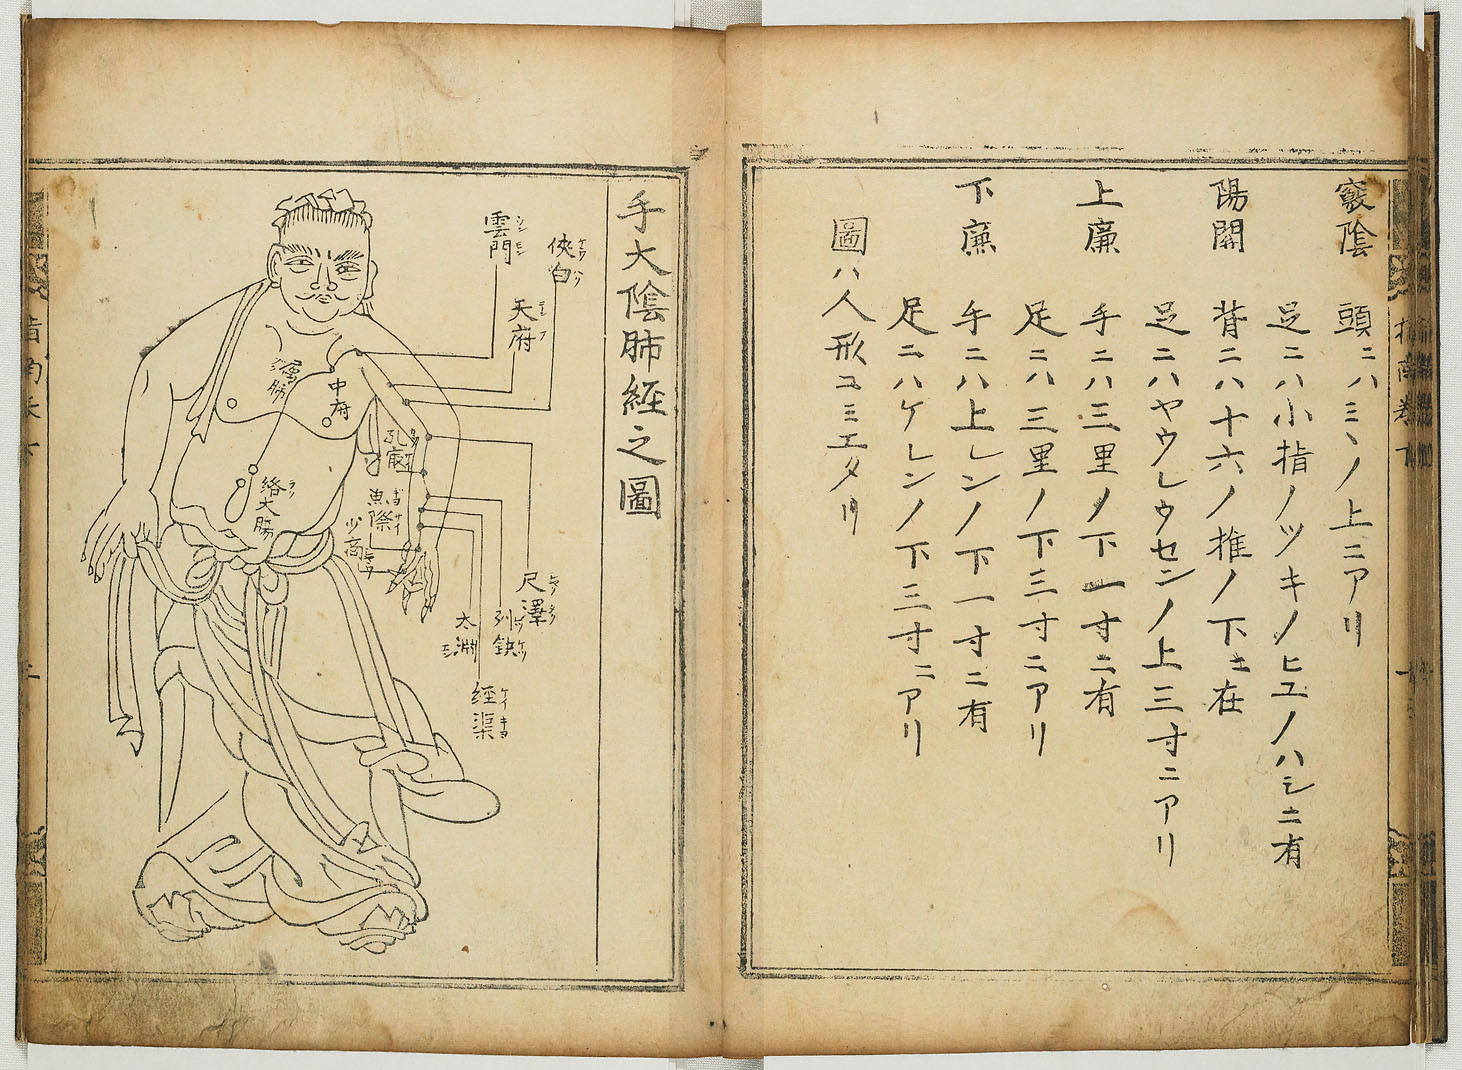 竅陰 頭ニハミヽノ上ニアリ
足ニハ小指ノツキノヒユノハシニ有
陽関 背ニハ十六ノ推ノ下ニ在
足ニハヤウレウセンノ上三寸ニアリ
上廉 手ニハ三里ノ下一寸ニ有
足ニハ三里ノ下三寸ニアリ
下廉 手ニハ上レンノ下一寸ニ有
足ニハケレンノ下三寸ニアリ
圖ハ人形ユミエタリ
手大陰肺経之圖
侠白
雲門
天府
中府
属肺
孔最
絡大腸
魚際
少商
尺澤
列缺
太淵
経渠